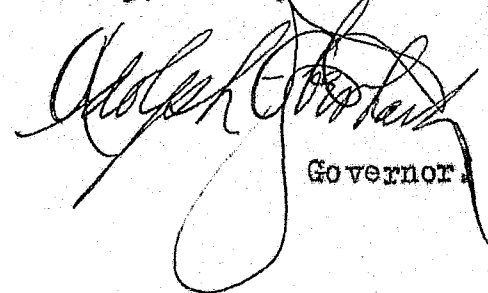 Adolph O Eberhart
Governor.